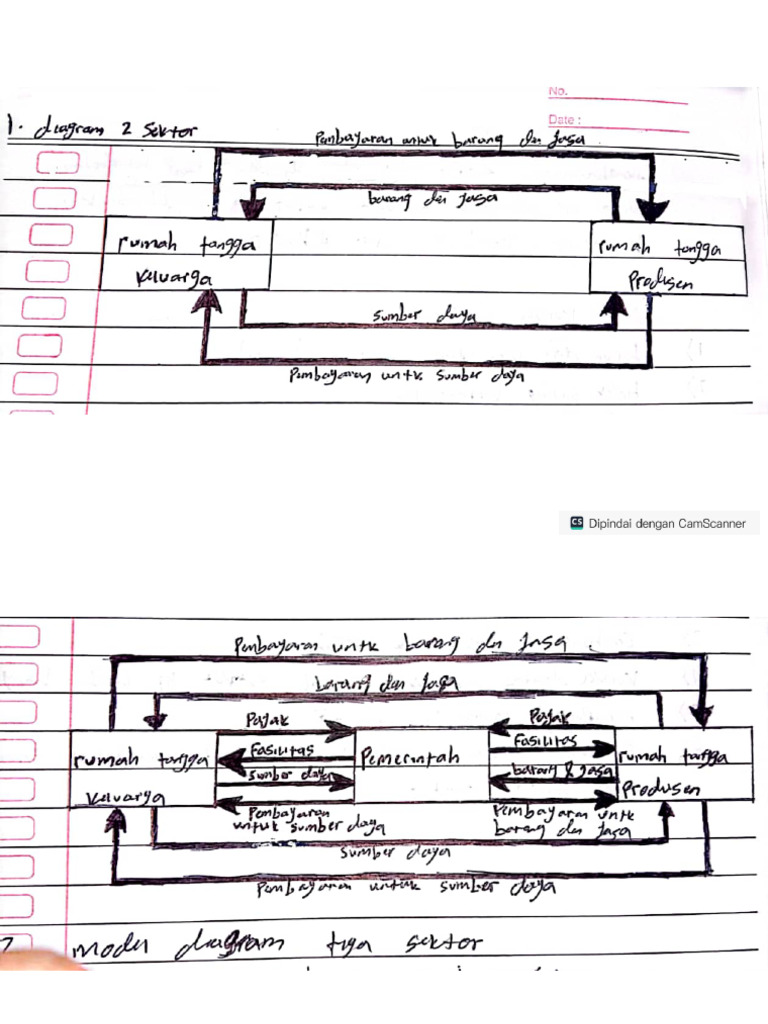 No.
Date :
1. diagram 2 sektor
Pembayaran untuk barang dan Jasa
barang dan Jasa
rumah tangga
keluarga
rumah tangga
Produsen
sumber daya
Pembayaran untk sumber daya
CS Dipindai dengan CamScanner
Pembayaran untk barang dan Jasa
barang dan Jasa
Pajak
Pajak
Fasilitas
Fasilitas
rumah tangga
Pemerintah
rumah tangga
sumber daya
barang & Jasa
keluarga
Produsen
Pembayaran
untuk sumber daya
Pembayaran untk
barang dan Jasa
sumber daya
Pembayaran untuk sumber daya
2 model diagram tiga sektor